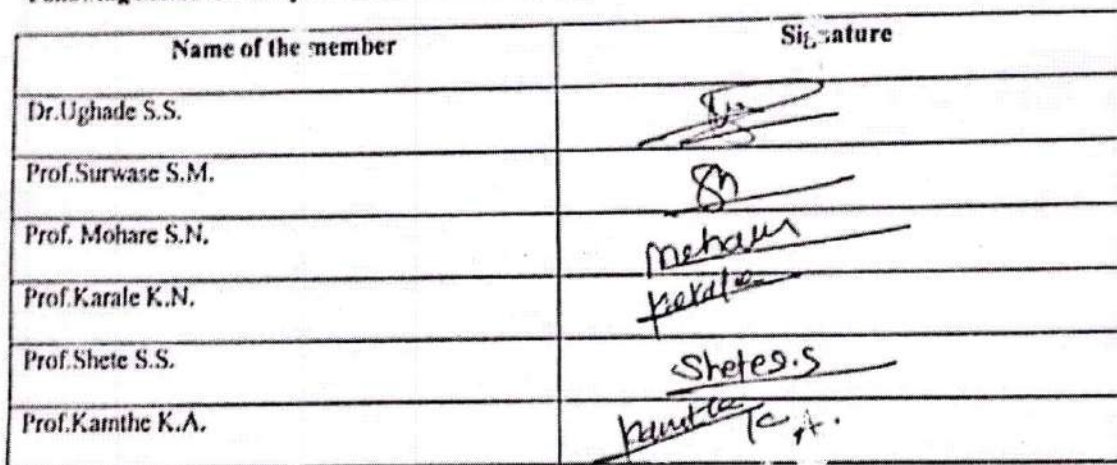 Name of the member Signature
Dr.Ughade S.S.
Prof.Surwase S.M.
Prof. Mohare S.N.
Prof.Karale K.N.
Prof.Shete S.S.
Shete S.S
Prof.Kamthe K.A.